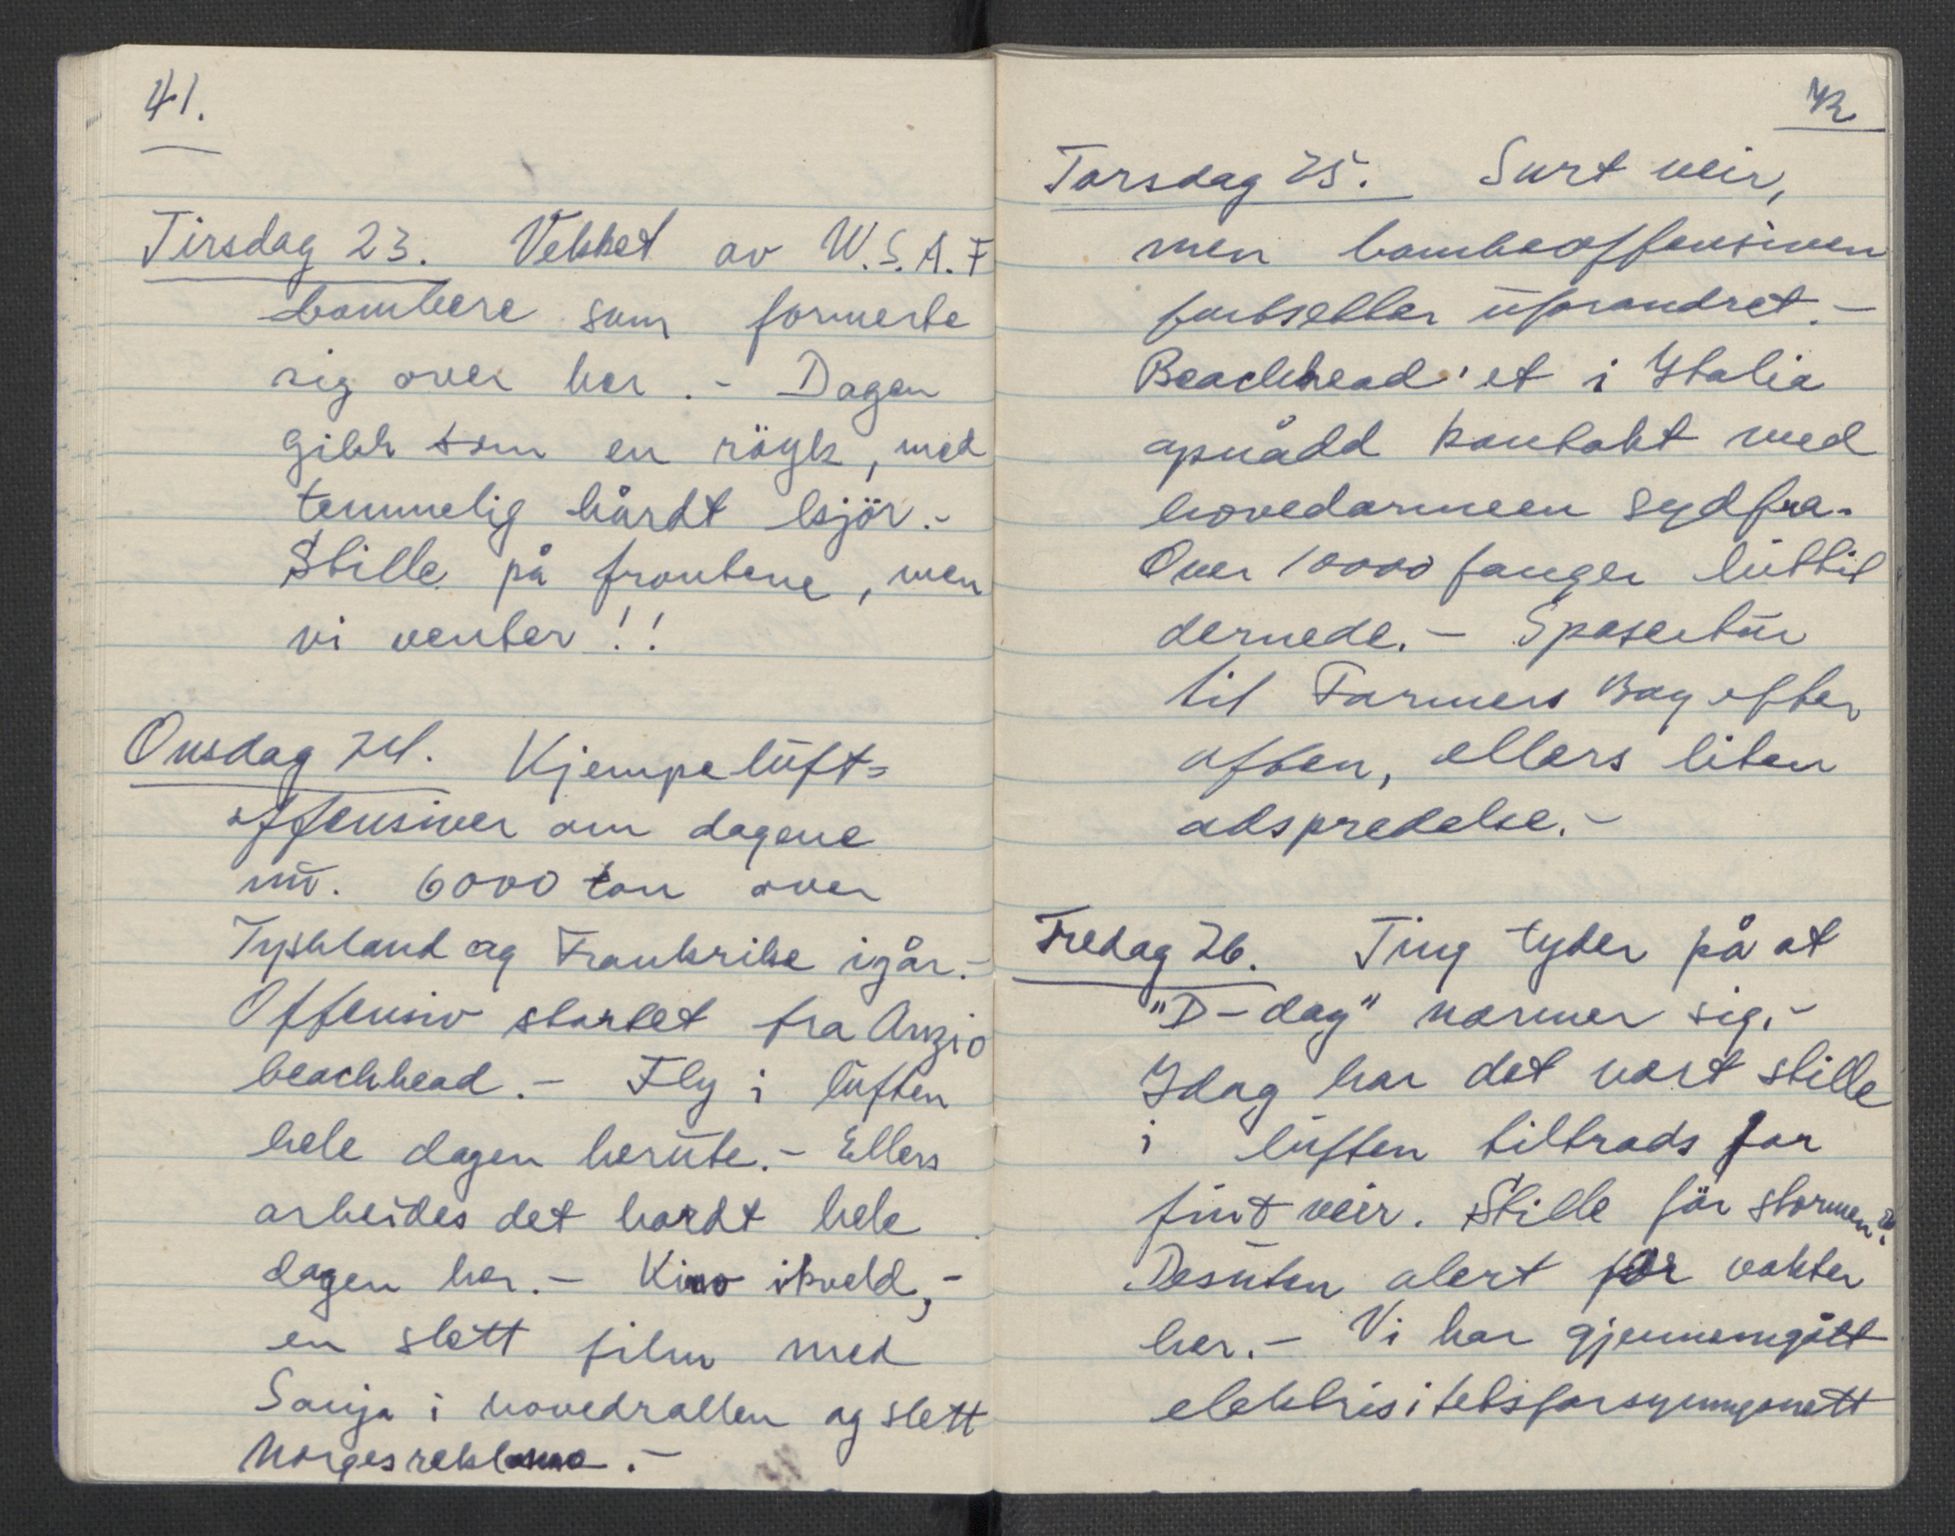 41.
Tirsdag 23. Vekket av U.S.A.F
bombere som formerte
sig over her. - Dagen
gikk som en röyk, med
temmelig hårdt kjör. -
Stille på frontene, men
vi venter!!
Onsdag 24. Kjempeluft=
offensiver om dagene
nu. 6000 ton over
Tyskland og Frankrike igår. -
Offensiv startet fra Anzio
beachhead. - Fly i luften
hele dagen herute. - Ellers
arbeides det hardt hele
dagen her. - Kino ikveld, -
en slett film med
Sonja i hovedrollen og slett
Norgesreklame. -
42
Torsdag 25. Surt veir,
men bombeoffensiven
fortsetter uforandret. -
Beachhead'et i Italia
opnådd kontakt med
hovedarmeen sydfra.
Over 10000 fanger hittil
dernede. - Spasertur
til Farmers Bay efter
aften, ellers liten
adspredelse. -
Fredag 26. Ting tyder på at
"D-dag" nærmer sig. -
Idag har det vært stille
i luften tiltrods for
fint veir. Stille för stormen?
Desuten alert for vakter
her. - Vi har gjennemgått
elektrisitetsforsyningsnett